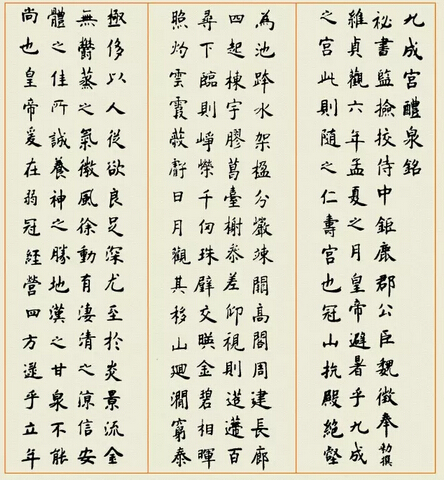 九成宮醴泉銘
祕書監撿挍侍中鉅鹿郡公臣魏徵奉勑撰
維貞觀六年孟夏之月皇帝避暑乎九成
之宮此則随之仁壽宮也冠山抗殿絕壑
為池跨水架楹分巖竦闕高閣周建長廊
四起棟宇膠葛臺榭叅差仰視則迢遰百
尋下臨則崢嶸千仞珠壁交暎金碧相暉
照灼雲霞蔽虧日月觀其移山廻澗窮泰
極侈以人從欲良足深尤至於炎景流金
無鬱蒸之氣微風徐動有淒清之涼信安
體之佳所誠養神之勝地漢之甘泉不能
尚也皇帝爰在弱冠經營四方逮乎立年